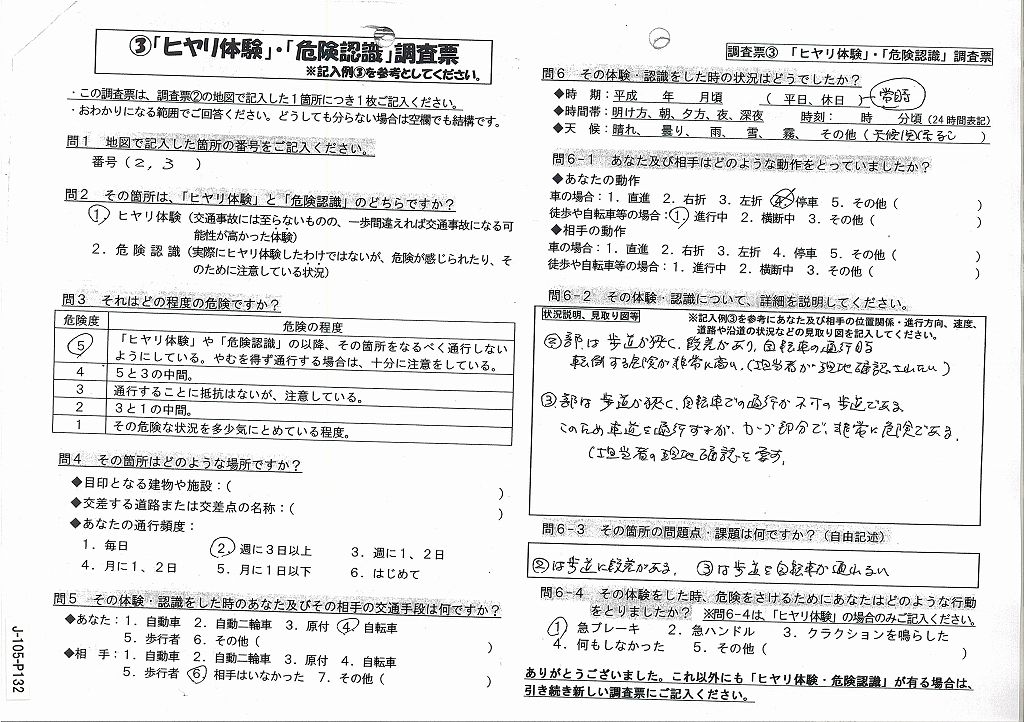 ③「ヒヤリ体験」・「危険認識」調査票
※記入例③を参考としてください。
・この調査票は、調査票②の地図で記入した1箇所につき1枚ご記入ください。
・おわかりになる範囲でご回答ください。どうしても分らない場合は空欄でも結構です。
問1 地図で記入した箇所の番号をご記入ください。
番号(2, 3 )
問2 その箇所は、「ヒヤリ体験」と「危険認識」のどちらですか?
① ヒヤリ体験(交通事故には至らないものの、一歩間違えれば交通事故になる可
能性が高かった体験)
2.危険認識(実際にヒヤリ体験したわけではないが、危険が感じられたり、そ
のために注意している状況)
問3 それはどの程度の危険ですか?
危険度 危険の程度
⑤ 「ヒヤリ体験」や「危険認識」の以降、その箇所をなるべく通行しない
ようにしている。やむを得ず通行する場合は、十分に注意をしている。
4 5と3の中間。
3 通行することに抵抗はないが、注意している。
2 3と1の中間。
1 その危険な状況を多少気にとめている程度。
問4 その箇所はどのような場所ですか?
◆目印となる建物や施設:( )
◆交差する道路または交差点の名称:( )
◆あなたの通行頻度:
1.毎日 ②.週に3日以上 3.週に1、2日
4.月に1、2日 5.月に1日以下 6.はじめて
問5 その体験・認識をした時のあなた及びその相手の交通手段は何ですか?
◆あなた:1.自動車 2.自動二輪車 3.原付 ④.自転車
5.歩行者 6.その他( )
◆相 手:1.自動車 2.自動二輪車 3.原付 4.自転車
5.歩行者 ⑥.相手はいなかった 7.その他( )
J-105-P132
調査票③ 「ヒヤリ体験」・「危険認識」調査票
問6 その体験・認識をした時の状況はどうでしたか?
◆時 期:平成 年 月頃 ( 平日、休日 ) 常時
◆時間帯:明け方、朝、夕方、夜、深夜 時刻: 時 分頃(24時間表記)
◆天 候:晴れ、曇り、雨、雪、霧、その他(天候関係なし )
問6-1 あなた及び相手はどのような動作をとっていましたか?
◆あなたの動作
車の場合:1.直進 2.右折 3.左折 ④.停車 5.その他( )
徒歩や自転車等の場合:①.進行中 2.横断中 3.その他( )
◆相手の動作
車の場合:1.直進 2.右折 3.左折 4.停車 5.その他( )
徒歩や自転車等の場合:1.進行中 2.横断中 3.その他( )
問6-2 その体験・認識について、詳細を説明してください。
状況説明、見取り図等 ※記入例③を参考にあなた及び相手の位置関係・進行方向、速度、
道路や沿道の状況などの見取り図を記入してください。
②部は歩道が狭く、段差があり、自転車の通行時
転倒する危険が非常に高い、(担当者が現地確認されたい)
③部は歩道が狭く、自転車での通行が不可の歩道である
このため車道を通行するが、カーブ部分で、非常に危険である。
(担当者の現地確認を要す。
問6-3 その箇所の問題点・課題は何ですか?(自由記述)
②は歩道に段差がある。 ③は歩道を自転車が通れない
問6-4 その体験をした時、危険をさけるためにあなたはどのような行動
をとりましたか? ※問6-4は、「ヒヤリ体験」の場合のみご記入ください。
① 急ブレーキ 2.急ハンドル 3.クラクションを鳴らした
4.何もしなかった 5.その他( )
ありがとうございました。これ以外にも「ヒヤリ体験・危険認識」が有る場合は、
引き続き新しい調査票にご記入ください。